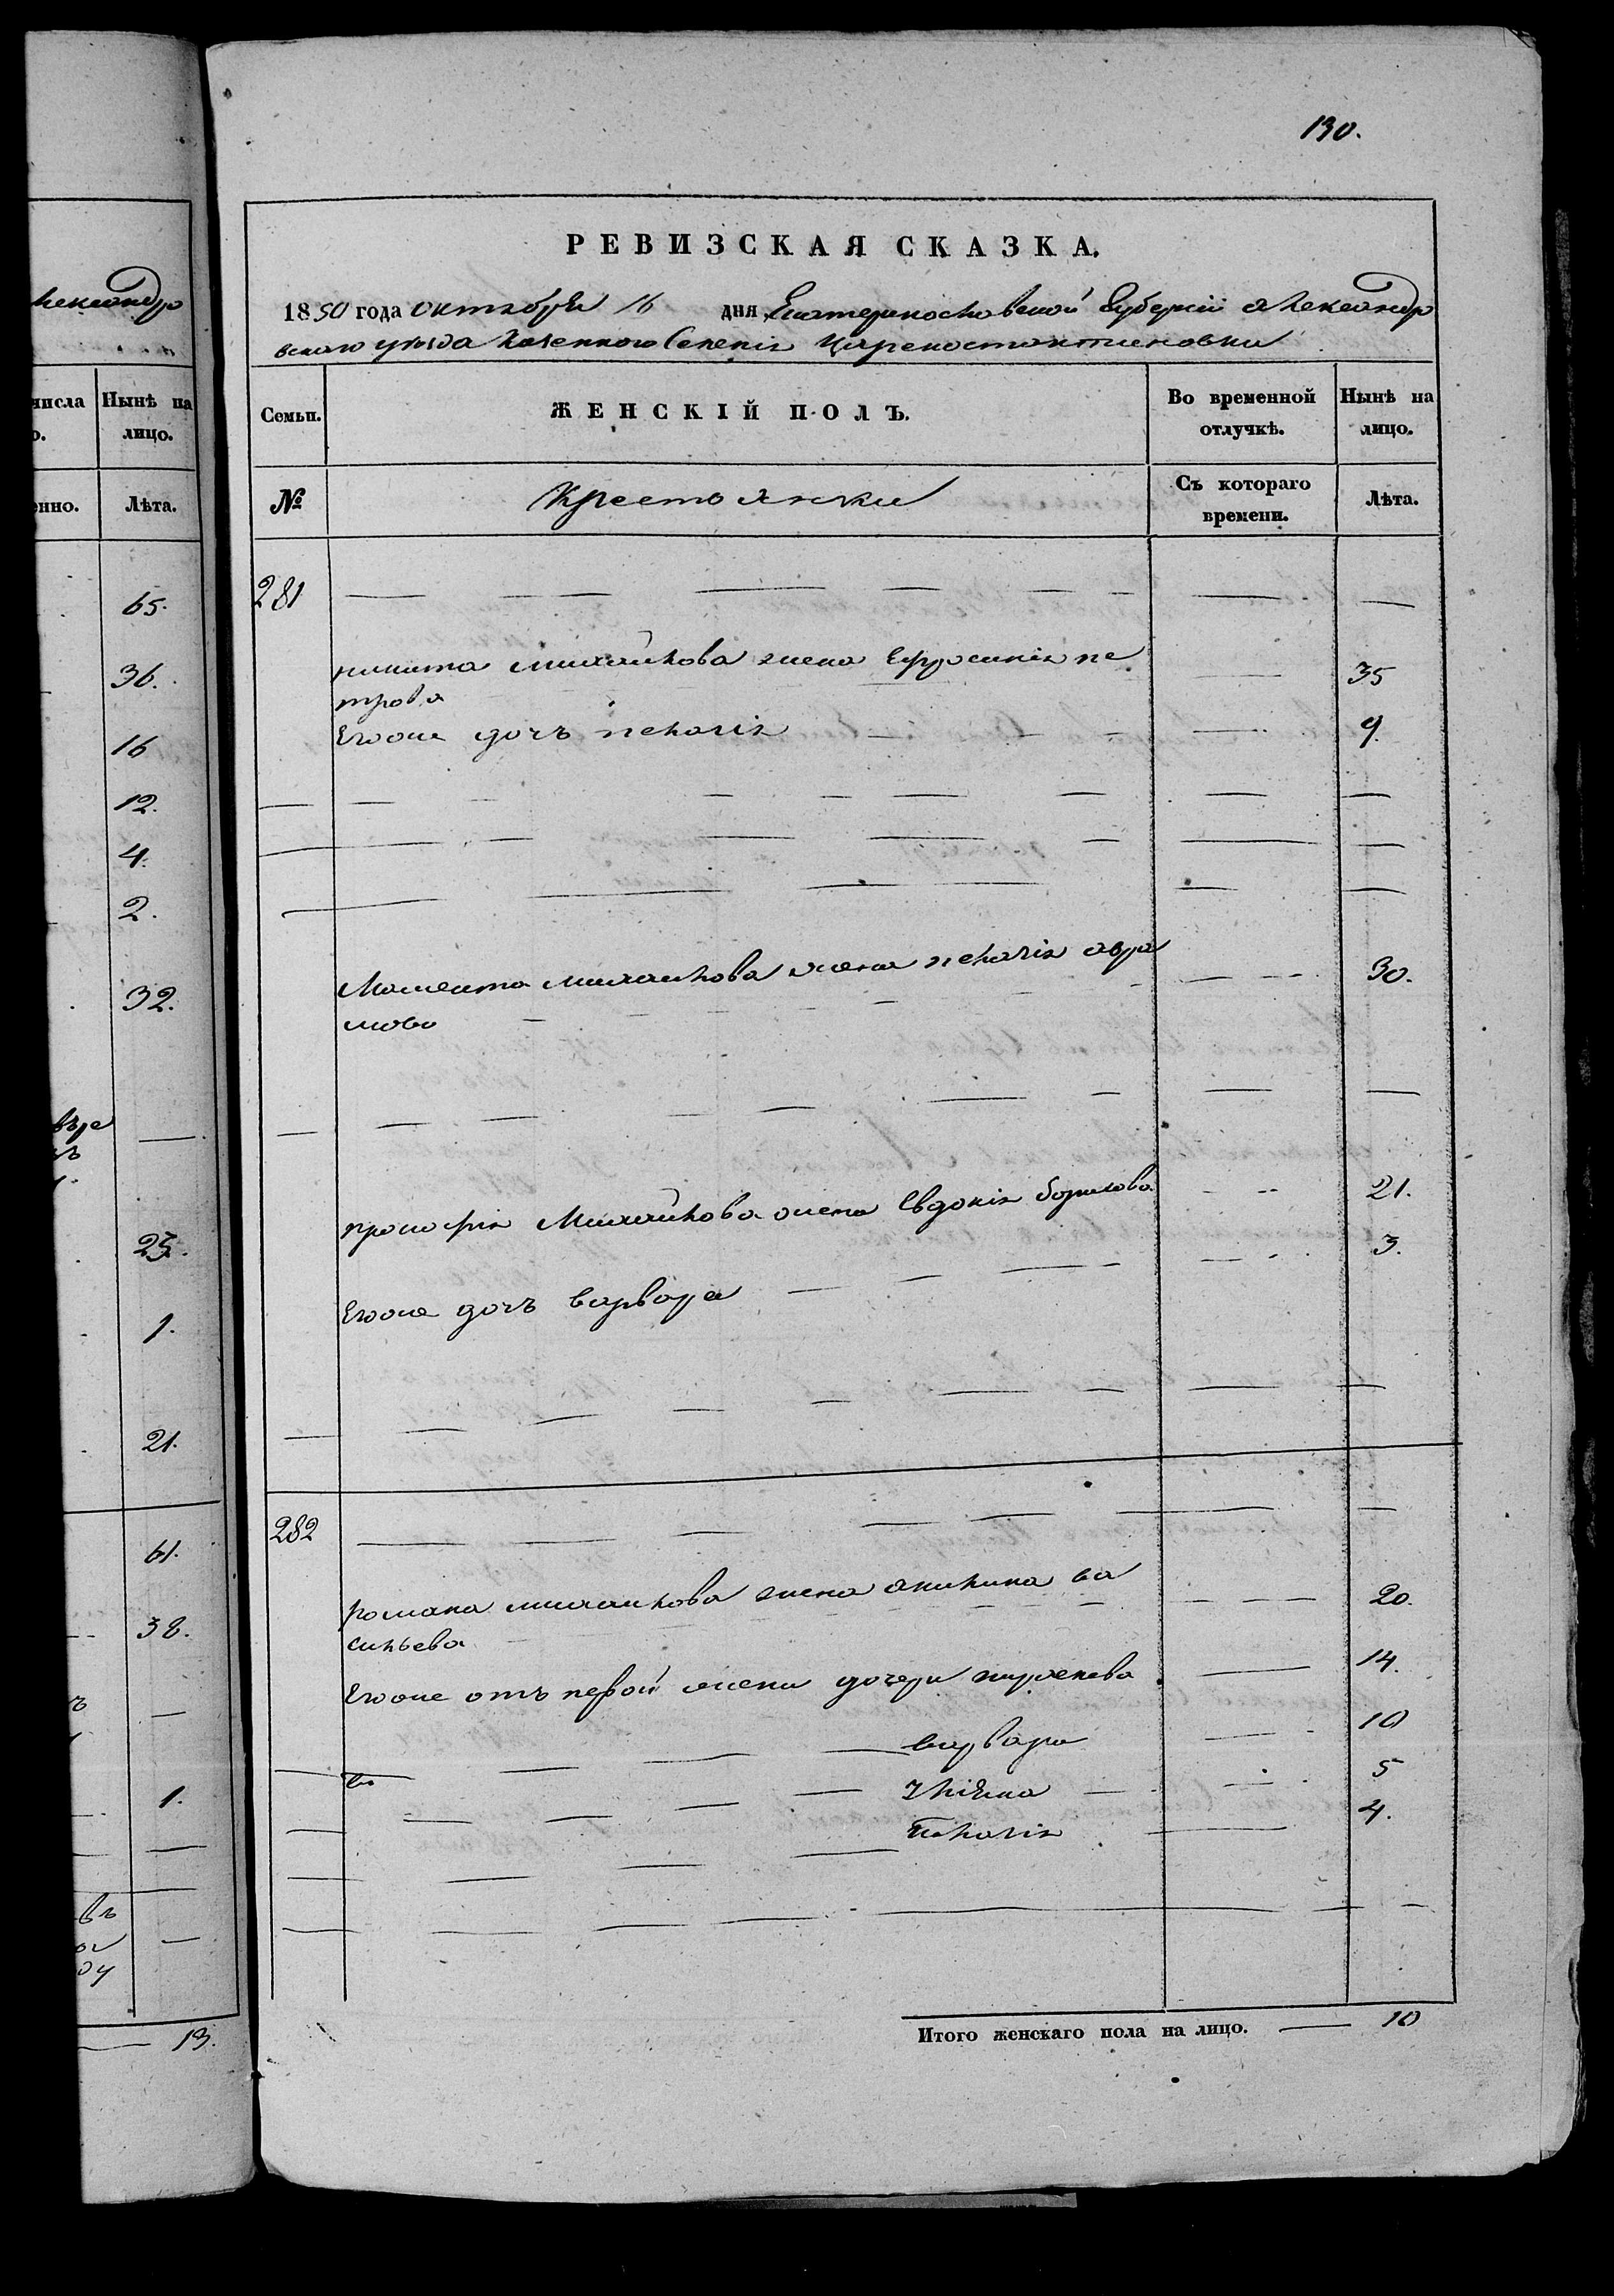 130.
РЕВИЗСКАЯ СКАЗКА.
1850 года октября 16 дня Екатеринославской Губернии Александр
вскаго уезда Казенного Селения Цареконстантиновки
Семьи.
ЖЕНСКІЙ ПОЛЪ.
Во временной отлучкѣ.
Нынѣ на лицо.
№
Крестоянки
Съ котораго времени.
Лѣта.
281
никита михайлова жена Ефросиния пе 35
трова
Егоже дочъ пелагия 9.
михайлова жена пелагия авра 30.
мова
прокофия Михайлова жена Евдокия борисова 21.
3.
Егоже дочъ варвара
282
романа михайлова жена акилина ва 20.
сильева
Егоже отъ первой жены дочери 14.
варвара 10
5
пелагия 4.
Итого женскаго пола на лицо. 10
лександр
числа
Нынѣ на лицо.
Лѣта.
65.
36.
16
12.
4.
2.
32.
23.
1.
21.
61.
38.
1.
13.